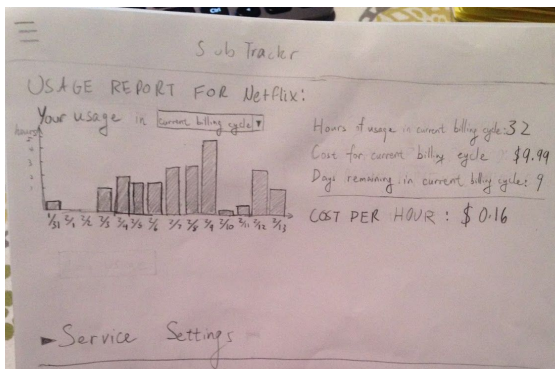 Sub Tracker
USAGE REPORT FOR Netflix:
Your usage in current billing cycle ▼
hours
5
4
3
2
1
1/31 2/1 2/2 2/3 2/4 2/5 2/6 2/7 2/8 2/9 2/10 2/11 2/12 2/13
Hours of usage in current billing cycle: 32
Cost for current billing cycle $9.99
Days remaining in current billing cycle: 9
COST PER HOUR: $0.16
►Service Settings